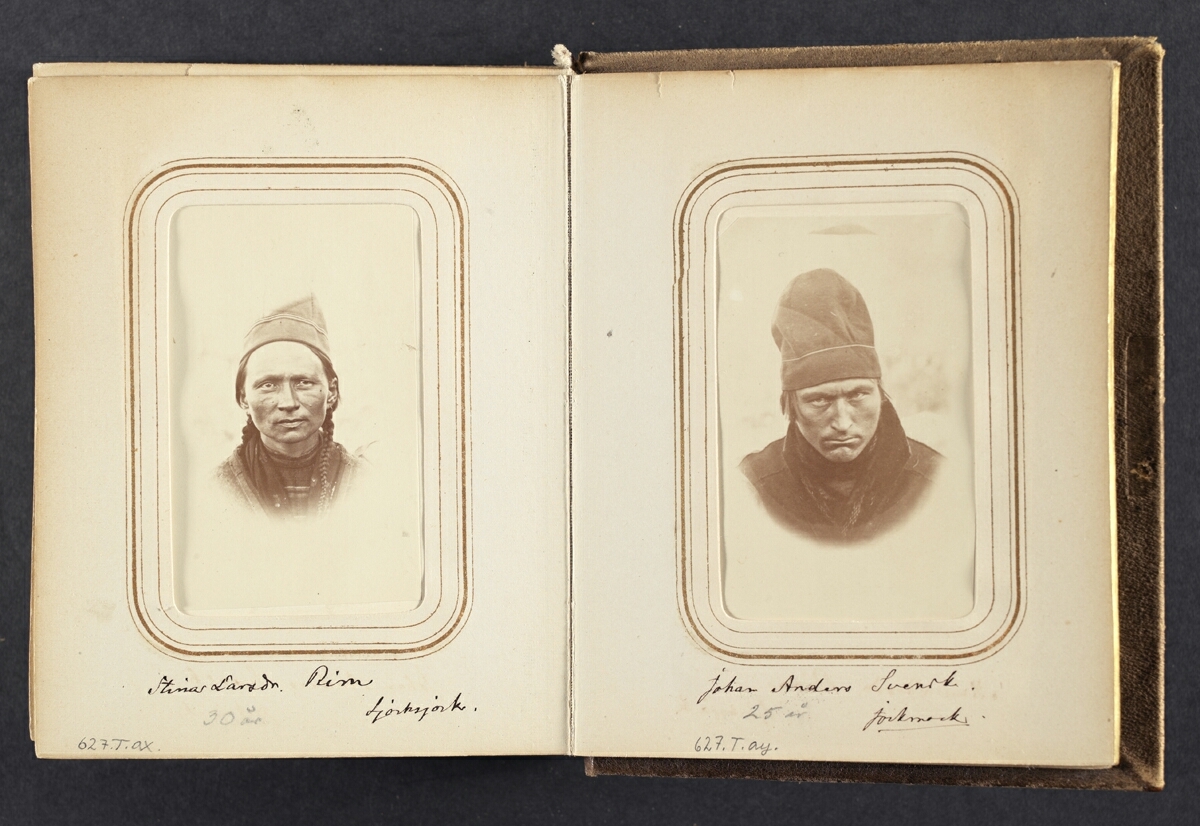 Stina Larsdr. Pirm
Sjocksjock.
30 år
627.T.ax.
Johan Anders Svensk.
Jockmock.
25 år
627.T.ay.